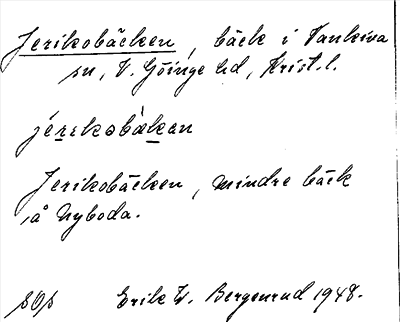 Jerikobäcken, bäck i Vankiva
sn, V. Göinge hd, Krist. l.
jèrikobäkan
Jerikobäcken, mindre bäck
å Nyboda.
Erik W. Bergenrud 1948.